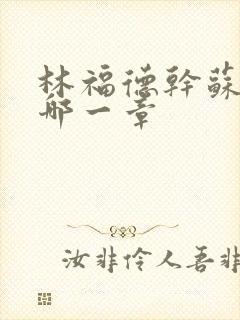 林福德幹蘇
那一章
汝非伶人吾非